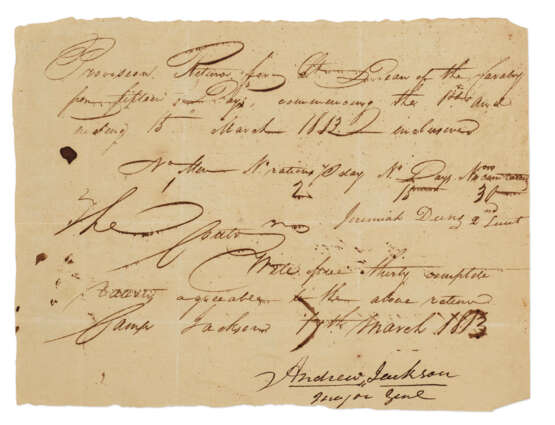 Provision Return for Dean of the Cavalry
for fifteen Days, commencing the 1st and
ending 15 March 1813 inclusive
No Men No rations p day No Days No
1 2 15 30
Jeremiah 2nd Lieut
The
Will give thirty complete
rations agreeable to the above return
Camp Jackson March 1813
Andrew Jackson
Major Genl